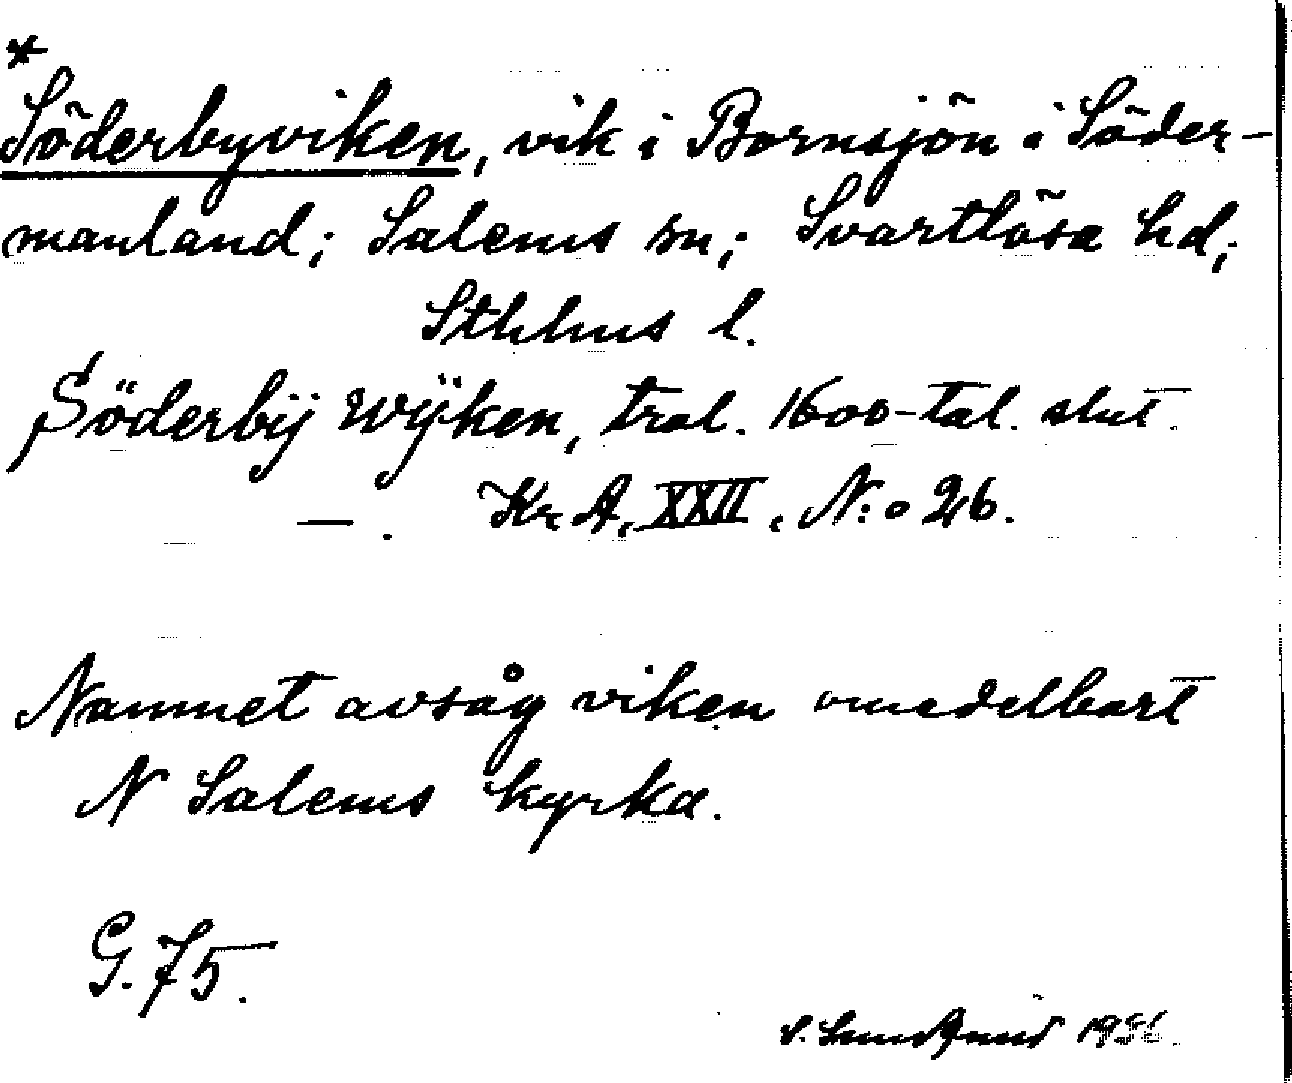 *
Söderbyviken, vik i Bornsjön i Söder-
manland; Salems sn; Svartlösa hd;
Sthlms l.
Söderbÿ Wÿken, trol. 1600-tal. slut.
—. Kr. A. XXII. N:o 26.
Namnet avsåg viken omedelbart
N Salems kyrka.
G. 75.
S. 19